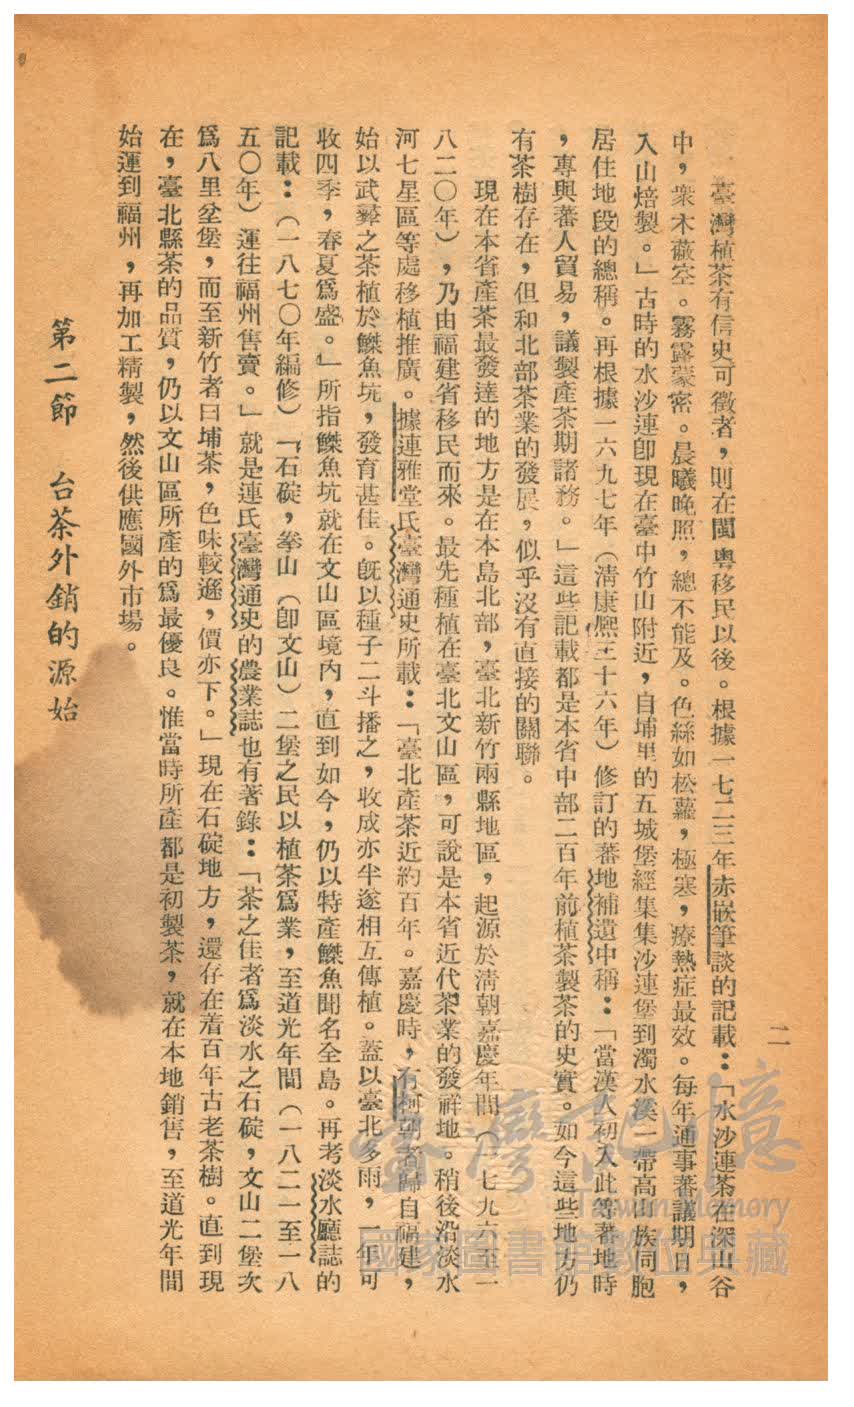 二
臺灣植茶有信史可徵者，則在閩粵移民以後。根據一七二三年赤嵌筆談的記載：「水沙連茶在深山谷
中，衆木蔽空。霧露蒙密。晨曦晚照，總不能及。色綠如松蘿，極寒，療熱症最效。每年通事蕃議期日，
入山焙製。」古時的水沙連卽現在臺中竹山附近，自埔里的五城堡經集集沙連堡到濁水溪一帶高山族同胞
居住地段的總稱。再根據一六九七年（清康熙三十六年）修訂的蕃地補遺中稱：「當漢人初入此等蕃地時
，專與蕃人貿易，議製產茶期諸務。」這些記載都是本省中部二百年前植茶製茶的史實。如今這些地方仍
有茶樹存在，但和北部茶業的發展，似乎沒有直接的關聯。
現在本省產茶最發達的地方是在本島北部，臺北新竹兩縣地區，起源於清朝嘉慶年間（一七九六至一
八二〇年），乃由福建省移民而來。最先種植在臺北文山區，可說是本省近代茶業的發祥地。稍後沿淡水
河七星區等處移植推廣。據連雅堂氏臺灣通史所載：「臺北產茶近約百年。嘉慶時，有柯朝者歸自福建，
始以武彝之茶植於鰶魚坑，發育甚佳。旣以種子二斗播之，收成亦半遂相互傳植。蓋以臺北多雨，一年可
收四季，春夏爲盛。」所指鰶魚坑就在文山區境內，直到如今，仍以特產鰶魚聞名全島。再考淡水廳誌的
記載：（一八七〇年編修）「石碇，拳山（卽文山）二堡之民以植茶爲業，至道光年間（一八二一至一八
五〇年）運往福州售賣。」就是連氏臺灣通史的農業誌也有著錄：「茶之佳者爲淡水之石碇，文山二堡次
爲八里坌堡，而至新竹者曰埔茶，色味較遜，價亦下。」現在石碇地方，還存在着百年古老茶樹。直到現
在，臺北縣茶的品質，仍以文山區所產的爲最優良。惟當時所產都是初製茶，就在本地銷售，至道光年間
始運到福州，再加工精製，然後供應國外市場。
第二節　台茶外銷的源始
臺灣記憶
Taiwan Memory
國家圖書館數位典藏